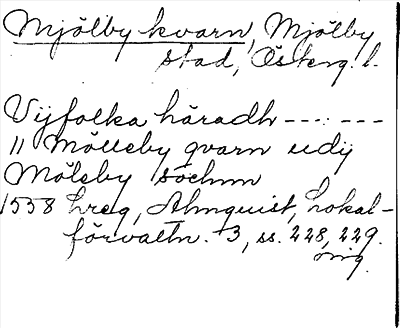 Mjölby kvarn, Mjölby
stad, Österg. l.
Vijfolka häradh ---:---
" Mölleby qvarn udij
Möleby sochnn
1558 Lreg, Almquist, Lokal-
förvaltn. 3, ss. 228, 229.
orig.